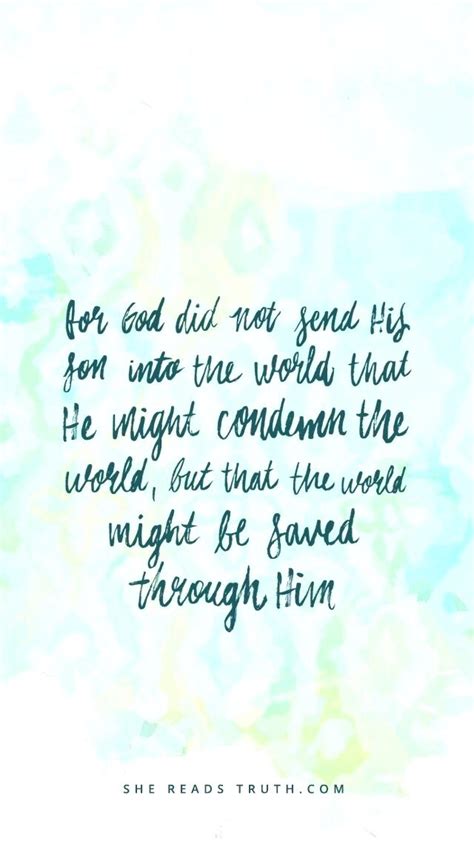 For God did not send His
Son into the world that
He might condemn the
world, but that the world
might be saved
through Him
SHE READS TRUTH.COM